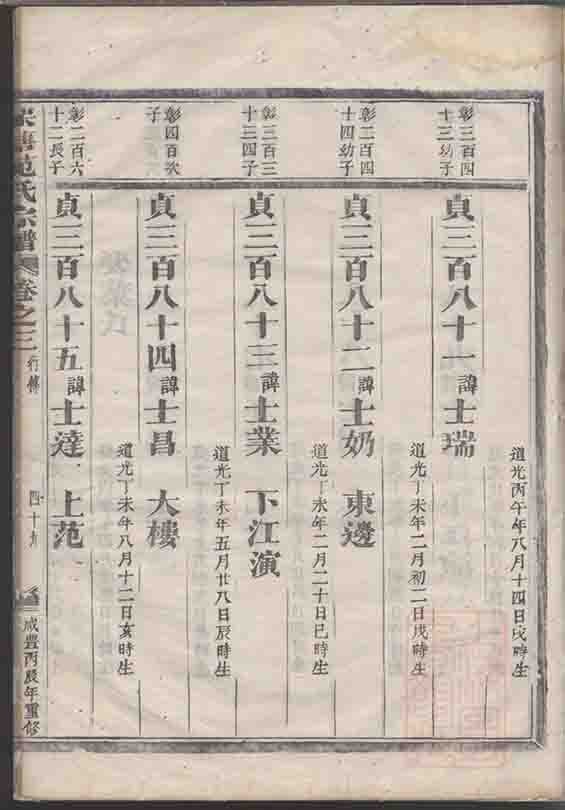 彰三百四
十三幼子
貞三百八十一諱士瑞
道光丙午年八月十四日戌時生
彰二百四
十四幼子
貞三百八十二諱士奶 東邊
道光丁未年二月初二日戌時生
彰三百三
十三四子
貞三百八十三諱士業 下江演
道光丁未年二月二十日巳時生
彰四百次
子
貞三百八十四諱士昌 大樓
道光丁未年五月廿八日辰時生
彰二百六
十二長子
貞三百八十五諱士達 上范
道光丁未年八月十二日亥時生
范氏宗譜 卷之三 行傳 四十九
咸豐丙辰年重修